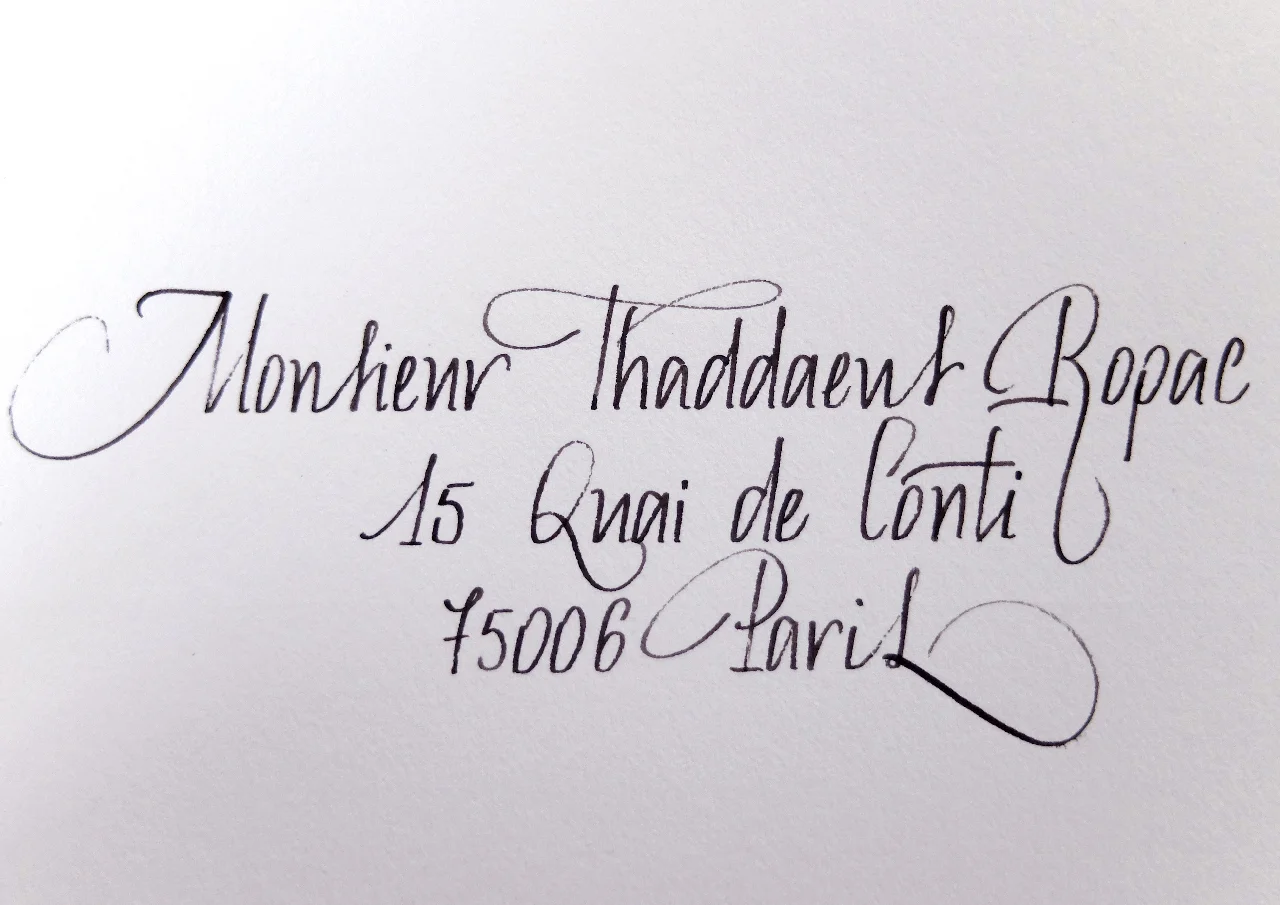 Monsieur Thaddaeus Ropac
15 Quai de Conti
75006 Paris